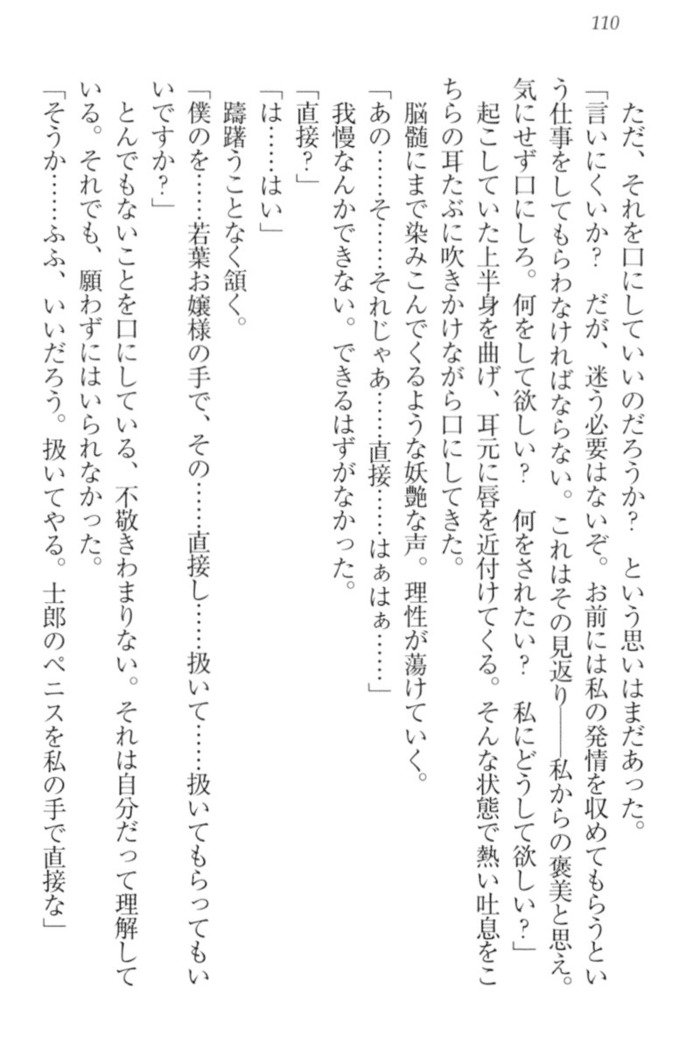 110
ただ、それを口にしていいのだろうか？　という思いはまだあった。
「言いにくいか？　だが、迷う必要はないぞ。お前には私の発情を収めてもらうとい
う仕事をしてもらわなければならない。これはその見返り――私からの褒美と思え。
気にせず口にしろ。何をして欲しい？　何をされたい？　私にどうして欲しい？」
起こしていた上半身を曲げ、耳元に唇を近付けてくる。そんな状態で熱い吐息をこ
ちらの耳たぶに吹きかけながら口にしてきた。
脳髄にまで染みこんでくるような妖艶な声。理性が蕩けていく。
「あの……そ……それじゃあ……直接……はぁはぁ……」
我慢なんかできない。できるはずがなかった。
「直接？」
「は……はい」
躊躇うことなく頷く。
「僕のを……若葉お嬢様の手で、その……直接し……扱いて……扱いてもらってもい
いですか？」
とんでもないことを口にしている、不敬きわまりない。それは自分だって理解して
いる。それでも、願わずにはいられなかった。
「そうか……ふふ、いいだろう。扱いてやる。士郎のペニスを私の手で直接な」